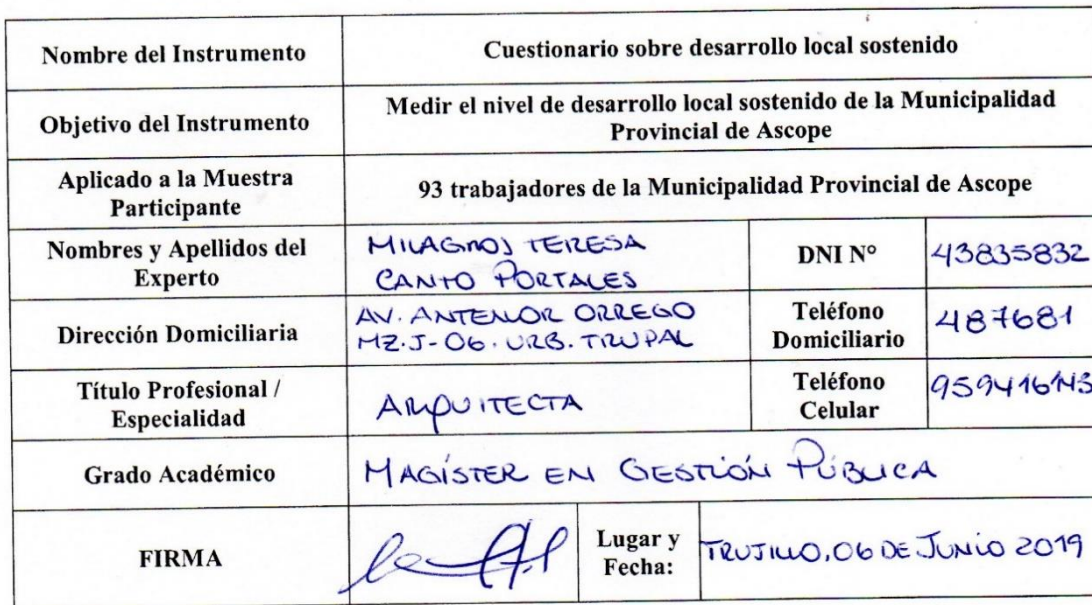 Nombre del Instrumento
Cuestionario sobre desarrollo local sostenido
Objetivo del Instrumento
Medir el nivel de desarrollo local sostenido de la Municipalidad
Provincial de Ascope
Aplicado a la Muestra
Participante
93 trabajadores de la Municipalidad Provincial de Ascope
Nombres y Apellidos del
Experto
MILAGROS TERESA
CANTO PORTALES
DNI N°
43835832
Dirección Domiciliaria
AV. ANTENOR ORREGO
MZ.J-06. URB. TRUPAL
Teléfono
Domiciliario
487681
Título Profesional /
Especialidad
ARQUITECTA
Teléfono
Celular
Grado Académico
MAGÍSTER EN GESTIÓN PÚBLICA
FIRMA
Lugar y
Fecha:
TRUJILLO, 06 DE JUNIO 2019